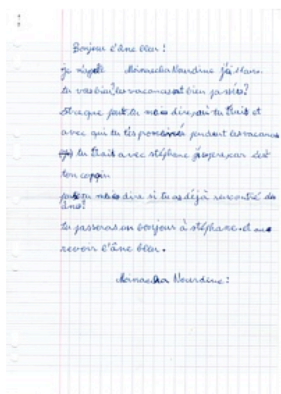 Bonjour l'âne bleu !
je m'apelle Moinaecha Nourdine j'ai 11 ans.
tu vas bien? les vacances sont bien passées?
Est ce que peut tu me dire, où tu était et
avec qui tu t'es promener pendant les vacances
tu était avec stéphane c'est
ton copain
peut tu me dire si tu as déjà rencontré des
âne?
tu passeras un bonjour à stéphane. et au
revoir l'âne bleu.
Moinaecha Nourdine :